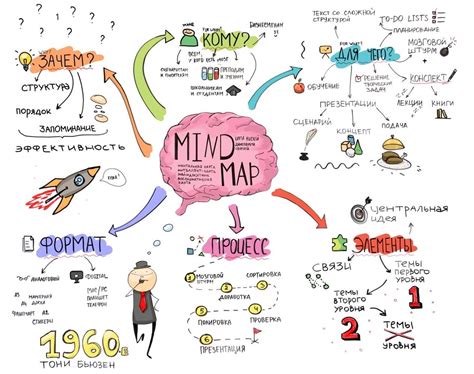 ЗАЧЕМ?
СТРУКТУРА
ПОРЯДОК
ЗАПОМИНАНИЕ
ЭФФЕКТИВНОСТЬ
КОМУ?
БИЗНЕСМЕНАМ
ВСЕМ,
ПРЕПОДАМ
И УЧЕНЫМ
ШКОЛЬНИКАМ
И СТУДЕНТАМ
ДЛЯ ЧЕГО?
ТЕКСТ СО СЛОЖНОЙ
СТРУКТУРОЙ
TO-DO LISTS
ПЛАНИРОВАНИЕ
МОЗГОВОЙ
ШТУРМ
КОНСПЕКТ
ЛЕКЦИИ
КНИГИ
РЕШЕНИЕ
ТВОРЧЕСКИХ
ЗАДАЧ
ОБУЧЕНИЕ
ПРЕЗЕНТАЦИИ
СЦЕНАРИЙ
КОНЦЕПТ
ПОДАЧА
MIND
MAP
ФОРМАТ
АНАЛОГОВЫЙ
МАРКЕРЫ
ДОСКА
СТИКЕРЫ
ПЛАНШЕТ
ТЕЛЕФОН
1960
ТОНИ БЬЮЗЕН
ПРОЦЕСС
1
МОЗГОВОЙ
ШТУРМ
СОРТИРОВКА
2
3
ДОРАБОТКА
4
5
ПОЛИРОВКА
ПРОВЕРКА
6
ПРЕЗЕНТАЦИЯ
ЭЛЕМЕНТЫ
ЦЕНТРАЛЬНАЯ
ИДЕЯ
СВЯЗИ
ТЕМЫ
ПЕРВОГО
УРОВНЯ
1
ТЕМЫ
ВТОРОГО
УРОВНЯ
2
ТЕМЫ
УРОВНЯ